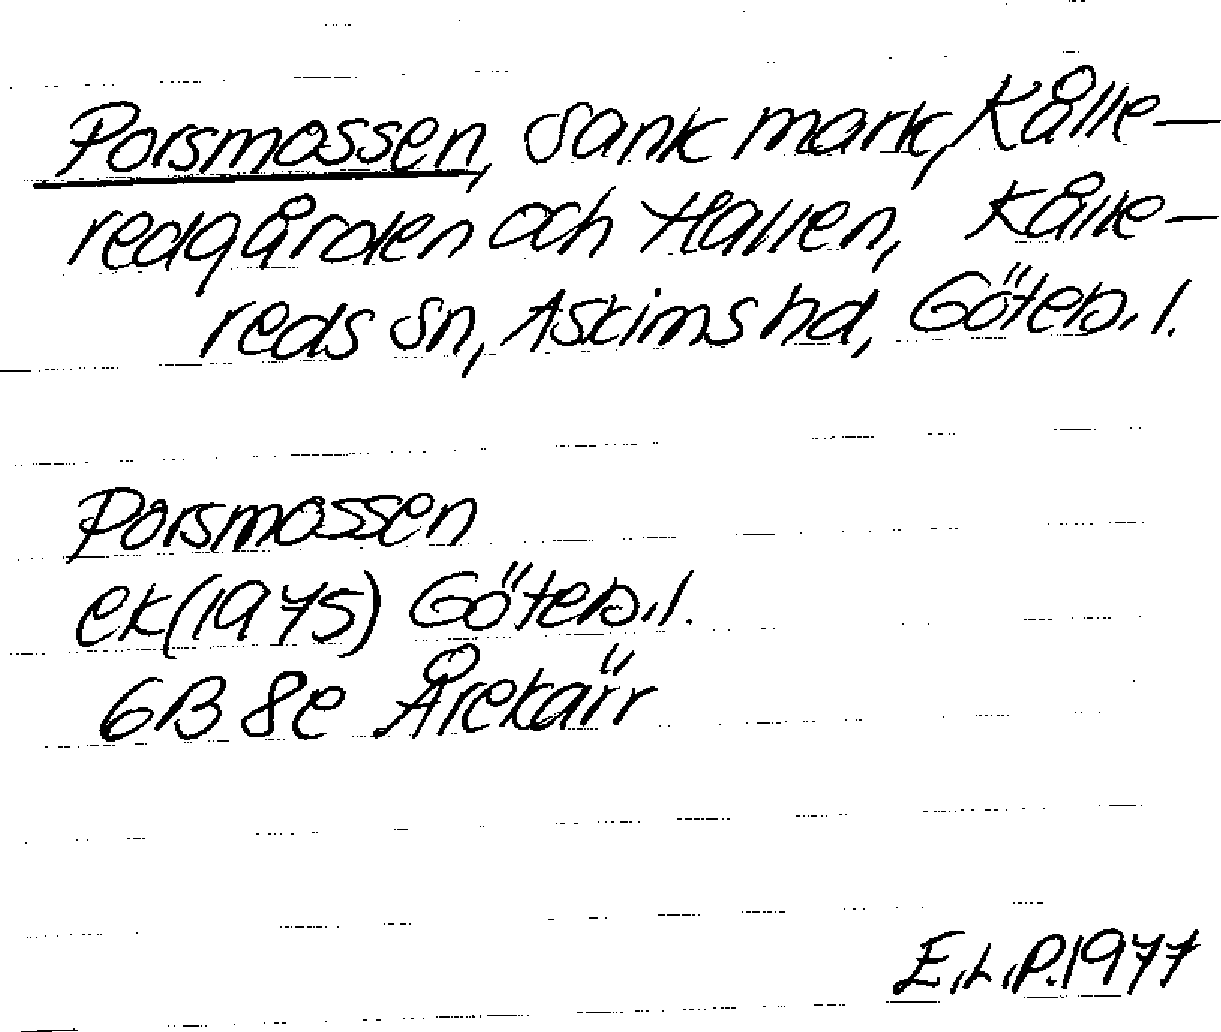 Porsmossen, sank mark, Kålle-
redgården och Hallen, Kålle-
reds sn, Askims hd, Göteb. l.
Porsmossen
ek (1975) Göteb. l.
6B 8e Årekärr
E.L.P. 1977